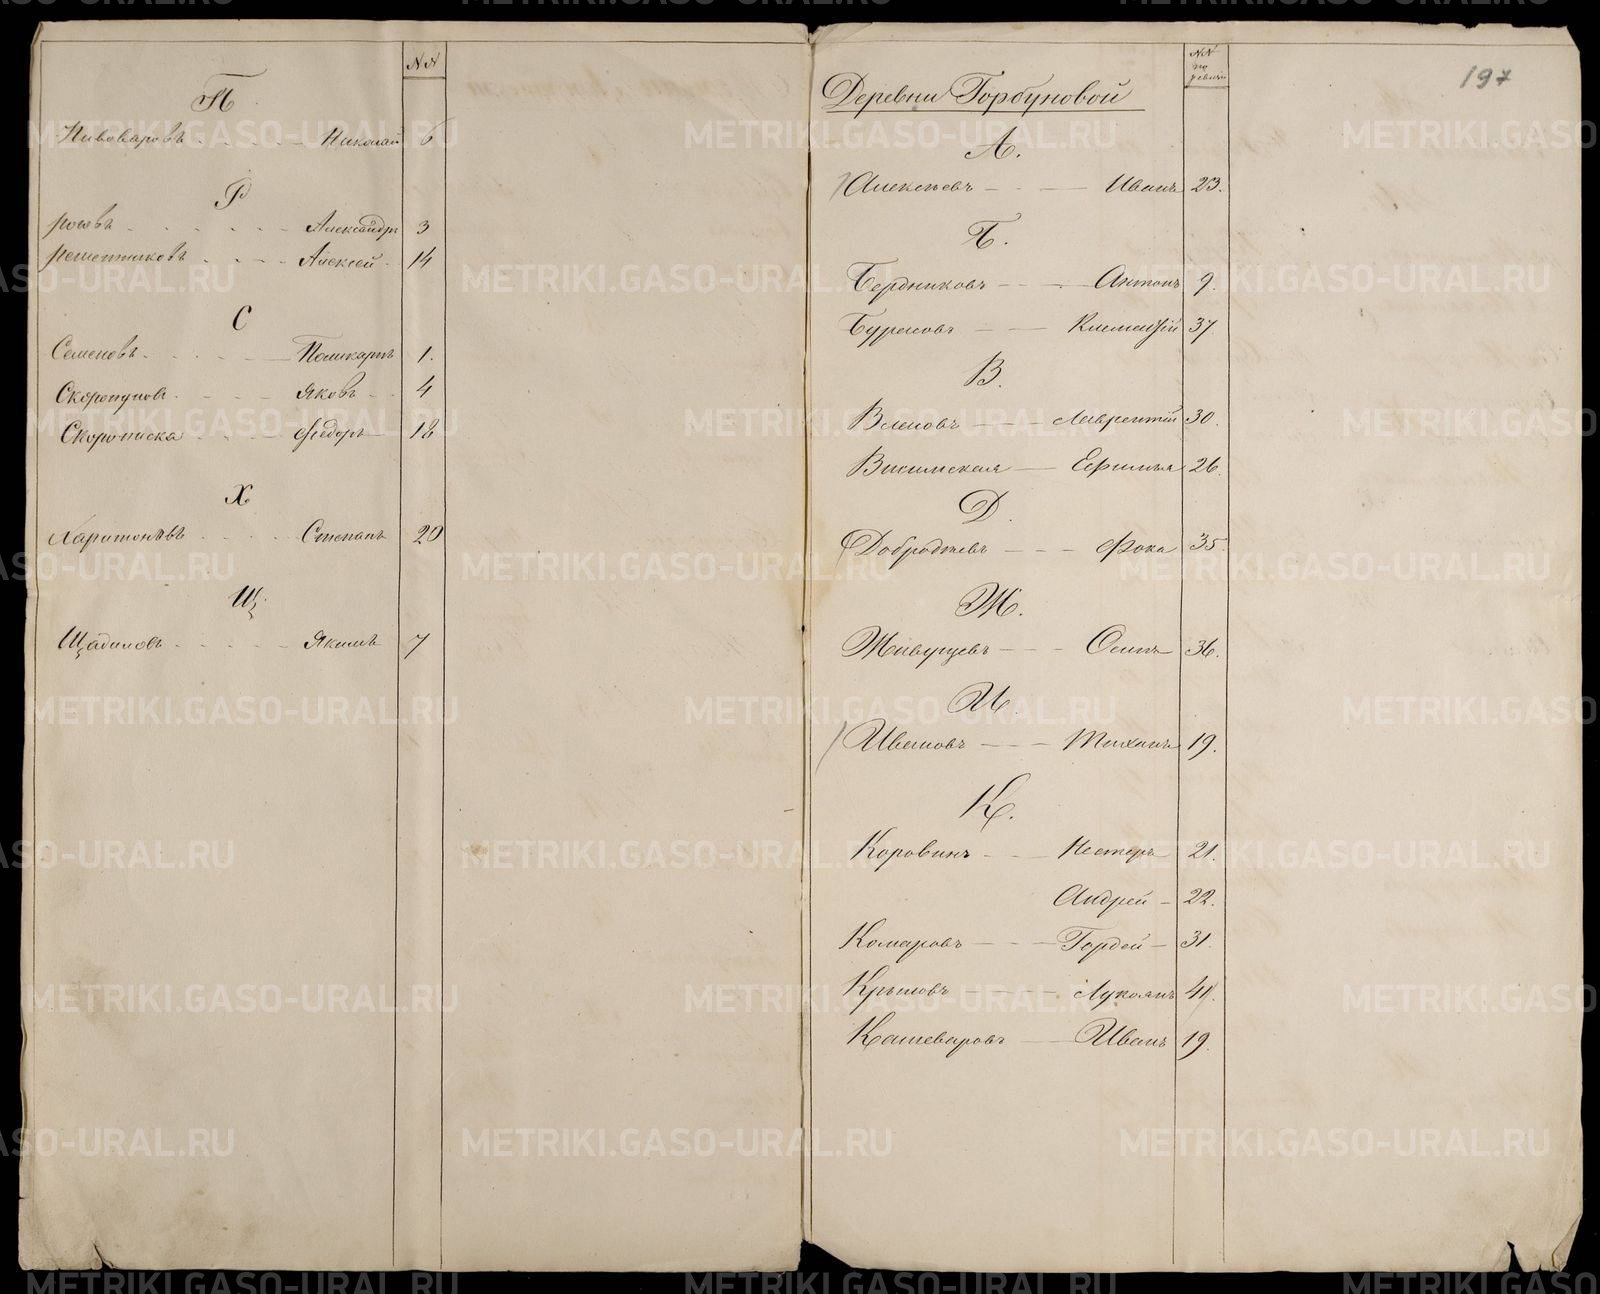 NN
П
Пивоваровъ Николай 6
Р
росовъ Александръ 3
решетниковъ Алексей 14
С
Семеновъ Поликарпъ 1.
Скорепуповъ Яковъ 4
Скорописка Федоръ 18
Х
Харитоновъ Степанъ 20
Щ
Щадиловъ Якимъ 7
NN
по
ревизiи
197
Деревни Горбуновой
А.
Алексѣевъ Иванъ 23.
Б.
Бердниковъ Антонъ 9.
Бурасовъ Клементiй 37.
В.
Власовъ Лаврентiй 30.
Висимская Ефимья 26.
Д.
Добродѣевъ Фока 35.
Ж.
Живуцевъ Осипъ 36.
И.
Ивановъ Тихонъ 19.
К.
Коровинъ Нестеръ 21.
Андрей 22.
Комаровъ Гордей 31.
Крыловъ Лукоянъ 41.
Кашеваровъ Иванъ 19.
METRIKI.GASO-URAL.RU